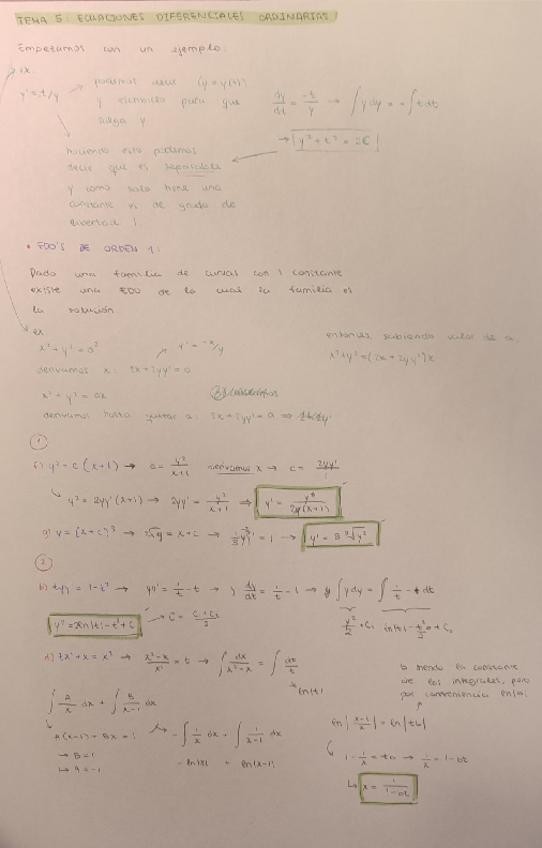 TEMA 5: ECUACIONES DIFERENCIALES ORDINARIAS
Empezamos con un ejemplo:
ex.
y' = t/y → podemos (y = y(t))
y para que
salga y
dy/dt = -t/y → ∫ y dy = -∫ t dt
→ y² + t² = 2C
haciendo esto podemos
decir que es separable
y como solo tiene una
constante es de grado de
libertad 1.
• EDO'S DE ORDEN 1:
Dado una familia de curvas con 1 constante
existe una EDO de la cual la familia es
la solución.
ex
x² + y² = a²
y' = -x/y
derivamos x: 2x + 2yy' = 0
x² + y² = ax
derivamos hasta quitar a: 2x + 2yy' = a ⇒
entonces, valor de a.
x² + y² = (2x + 2yy')x
①
f) y² = c(x+1) → c = y²/(x+1) derivamos x → c = 2yy'/1
y² = 2yy'(x+1) → 2yy' = y²/(x+1) ⇒ y' = y²/2y(x+1)
g) y = (x+c)³ → ∛y = x+c → = 1 → y' = 3∛y²
②
b) tyy' = 1-t² → yy' = 1/t - t → y dy/dt = 1/t - t → ∫ y dy = ∫ 1/t - t dt
y²/2 + C₁ ln|t| - t²/2 + C₂
C = (C₁ + C₂)/2
d) tx' + x = x² → (x²-x)/x' = t → ∫ dx/(x²-x) = ∫ dt/t
ln|t|
∫ A/x dx + ∫ B/(x-1) dx
A(x-1) + Bx = 1 → -∫ 1/x dx + ∫ 1/(x-1) dx
→ B = 1
↳ A = -1
-ln|x| + ln|x-1|
b siendo la constante
de las integrales, pero
por conveniencia ln|b|
ln|(x-1)/x| = ln|tb|
1 - 1/x = tb → 1/x = 1-bt
↳ x = 1/(1-bt)